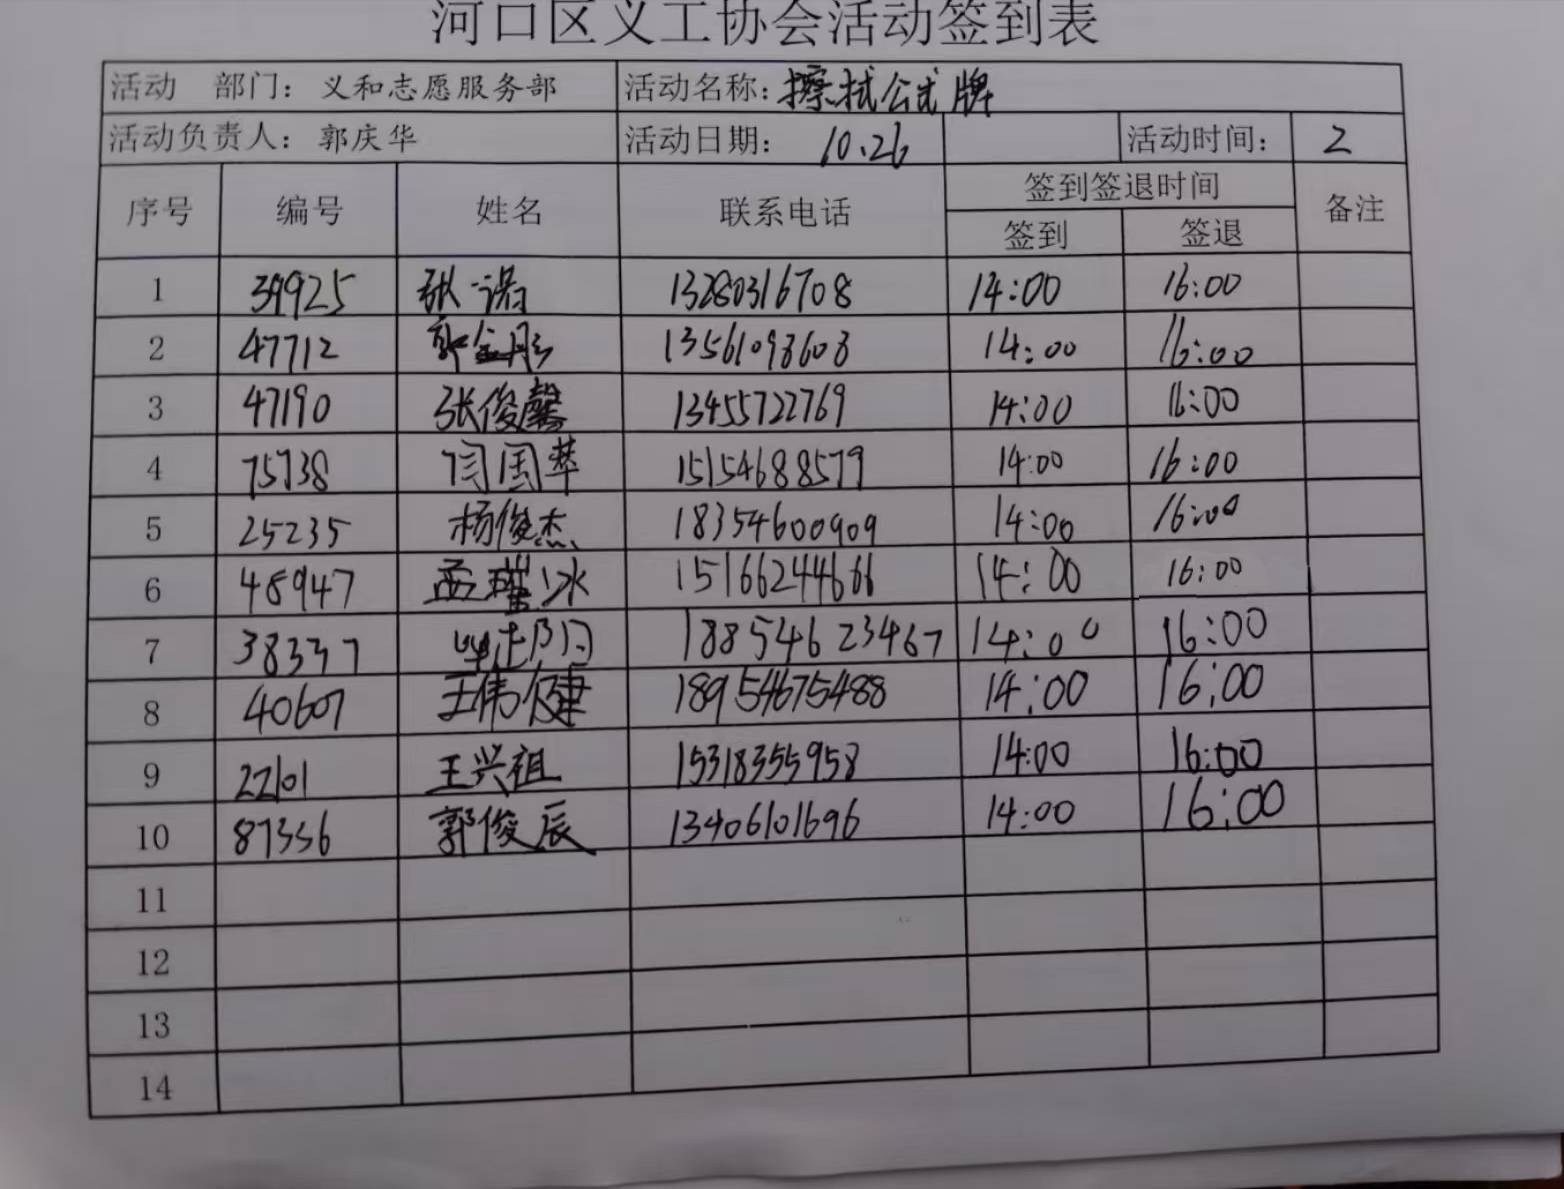 河口区义工协会活动签到表
活动 部门：义和志愿服务部 活动名称：擦拭公式牌
活动负责人：郭庆华 活动日期： 10.26 活动时间： 2
序号 编号 姓名 联系电话 签到签退时间 备注
签到 签退
1 39925 张诺 13280316708 14:00 16:00
2 47712 郭金彤 13561098608 14:00 16:00
3 47190 张俊馨 13455722769 14:00 16:00
4 75738 闫国苹 15154688579 14:00 16:00
5 25235 杨俊杰 18354600909 14:00 16:00
6 48947 孟瑾冰 15166244666 14:00 16:00
7 38337 18854623467 14:00 16:00
8 40607 王伟健 18954675488 14:00 16:00
9 22101 王兴祖 15318355958 14:00 16:00
10 87356 郭俊辰 13406101696 14:00 16:00
11
12
13
14